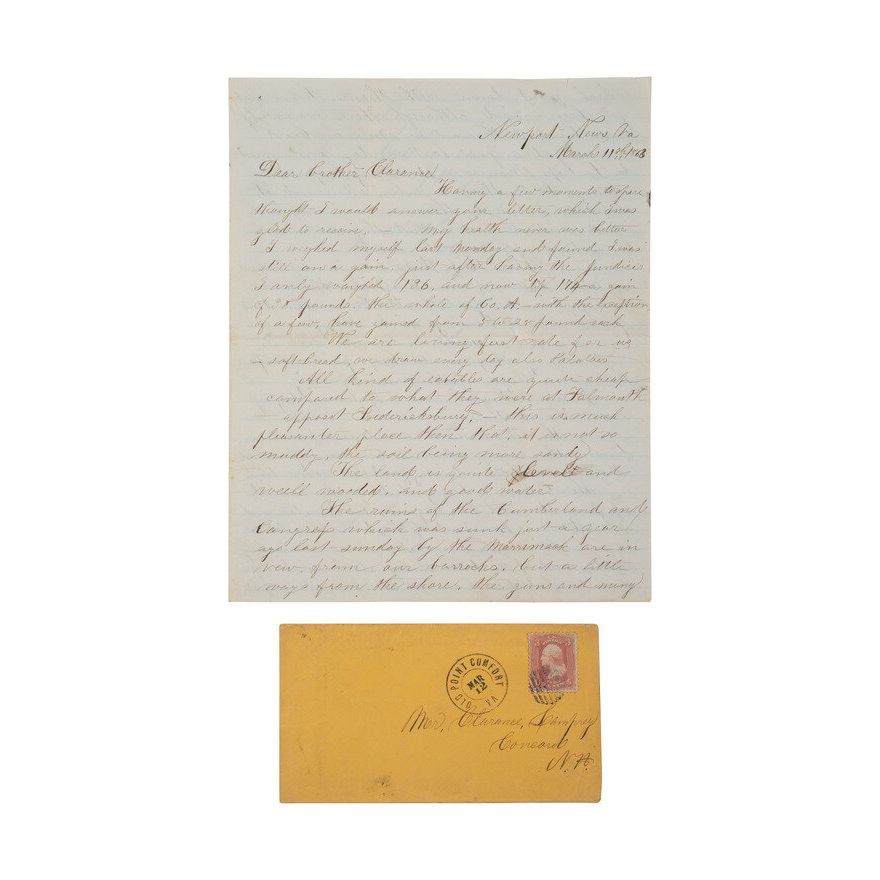 Newport News, Va
March 11th, 1863
Dear brother Clarance
Having a few moments to spare
thought I would answer your letter, which I was
glad to receive, - My health never was better
I weighed myself last Monday and found I was
still on a gain, just after having the Jundice
I only waighed 136, and now I 174 a gain
of 38 pounds. the whole of Co, A, - with the exception
of a few, have gained from 5 to 25 pound each
We are living first rate for us
- soft bread, we draw every day also Potatoes
All kind of eatables are quite cheap
compared to what they were at Falmouth
- apposit Fredericksburg, - this is much
pleasanter place then that, it is not so
muddy, the soil being more sandy
The land is quite levele and
well wooded, and good water
The ruins of the Cumberland and
Congress which was sunk just a year
ago last sunday by the Merrimack are in
vew from our barrocks, but a little
ways from the shore, the guns and many
OLD POINT COMFORT VA
MAR
12
Clarance, Lamprey
Concord
N.H.